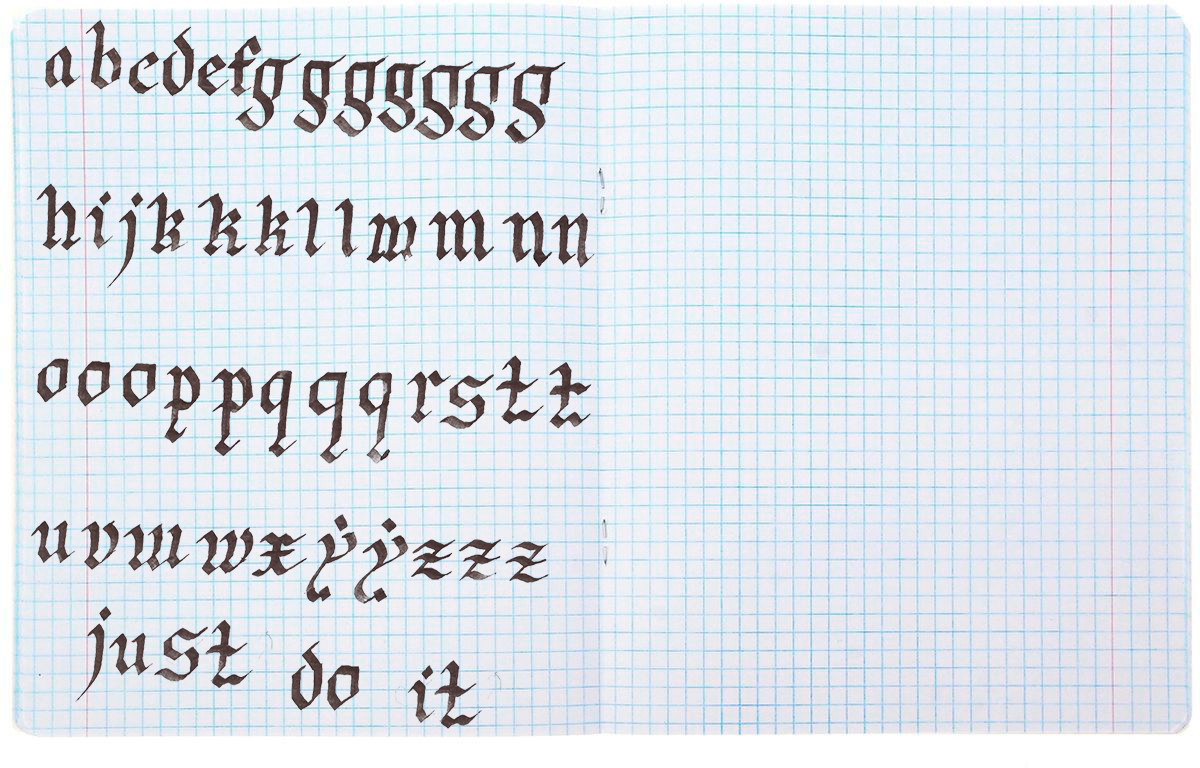 abcdefggggggg
hijkkkllmmnn
oooppqqqrstt
uvwwxẏẏzzz
just do it